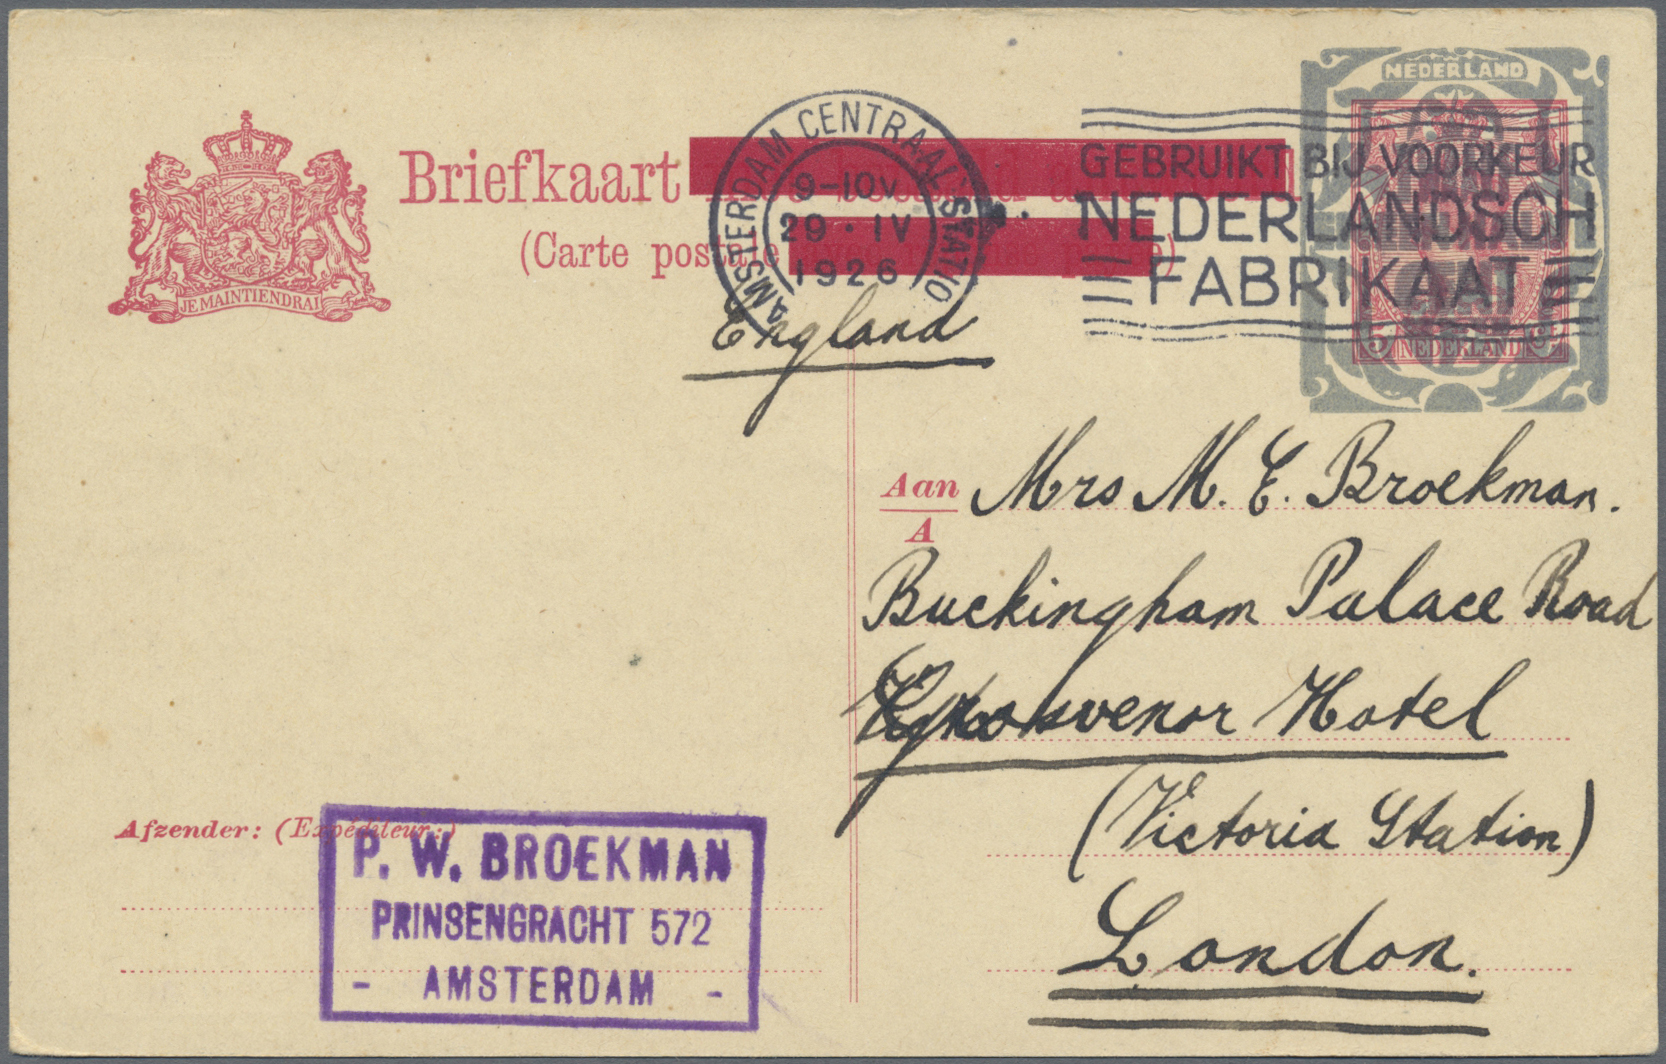 NEDERLAND
AMSTERDAM CENTRAAL STATIO
9-10V
29·IV
1926
GEBRUIKT BIJ VOORKEUR
NEDERLANDSCH
FABRIKAAT
Briefkaart
(Carte postale
JE MAINTIENDRAI
5 NEDERLAND
12
England
Aan
A
Mrs M. E. Broekman.
Buckingham Palace Road
Grosvenor Hotel
(Victoria Station)
London.
Afzender: (Expéditeur:)
P. W. BROEKMAN
PRINSENGRACHT 572
- AMSTERDAM -